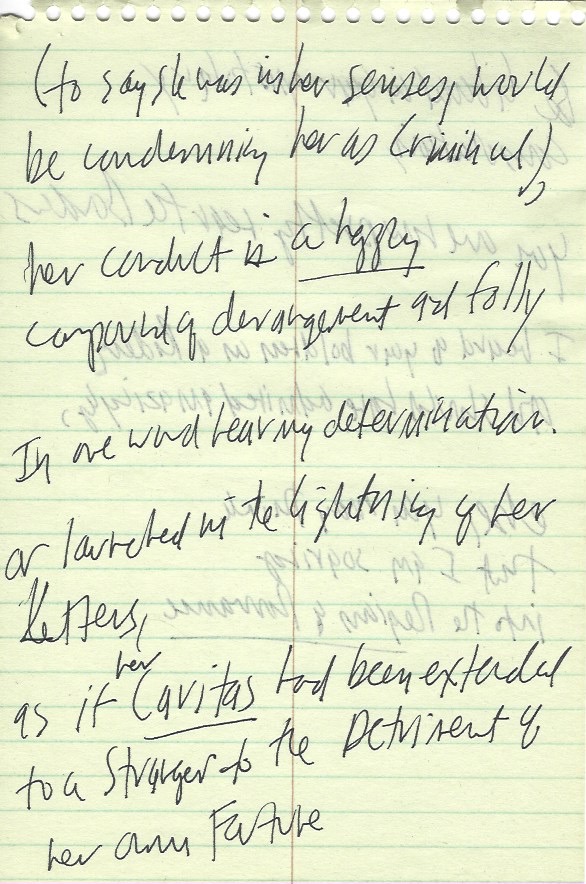 (to say she was in her senses, would
be condemning her as Criminal),
her conduct is a happy
compound of derangement and folly
In one word hear my determination.
or launched in the lightning of her
Letters,
her
as if Caritas had been extended
to a Stranger to the Detriment of
her own Fortune